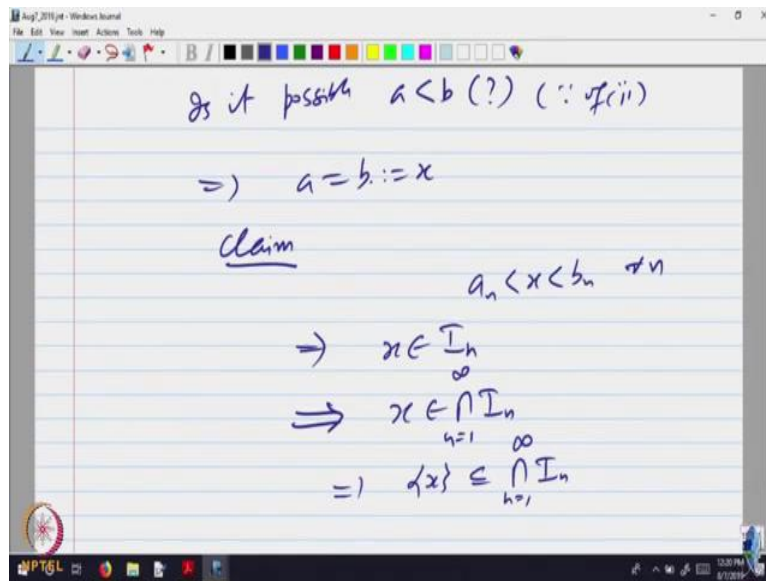 Aug7_2019.jnt - Windows Journal
File Edit View Insert Actions Tools Help
Is it possible a < b (?) (∵ of (ii)
=) a = b := x
Claim
a_n < x < b_n ∀ n
⇒ x ∈ I_n
⇒ x ∈ ∞ ⋂ n=1 I_n
=) {x} ⊆ ∞ ⋂ n=1 I_n
NPTEL
12:20 PM
8/7/2019